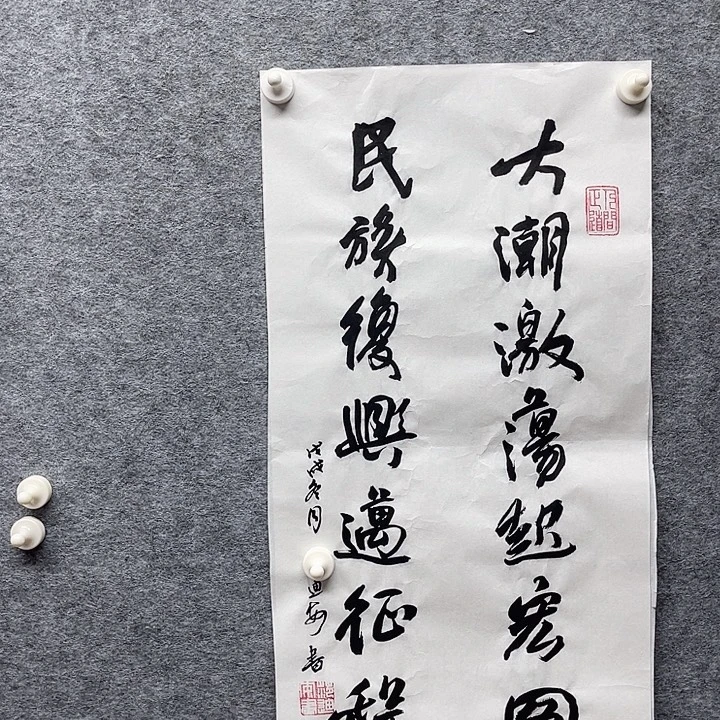 大潮激蕩起宏图
民族復興邁征程
戊戌冬月
迪安書